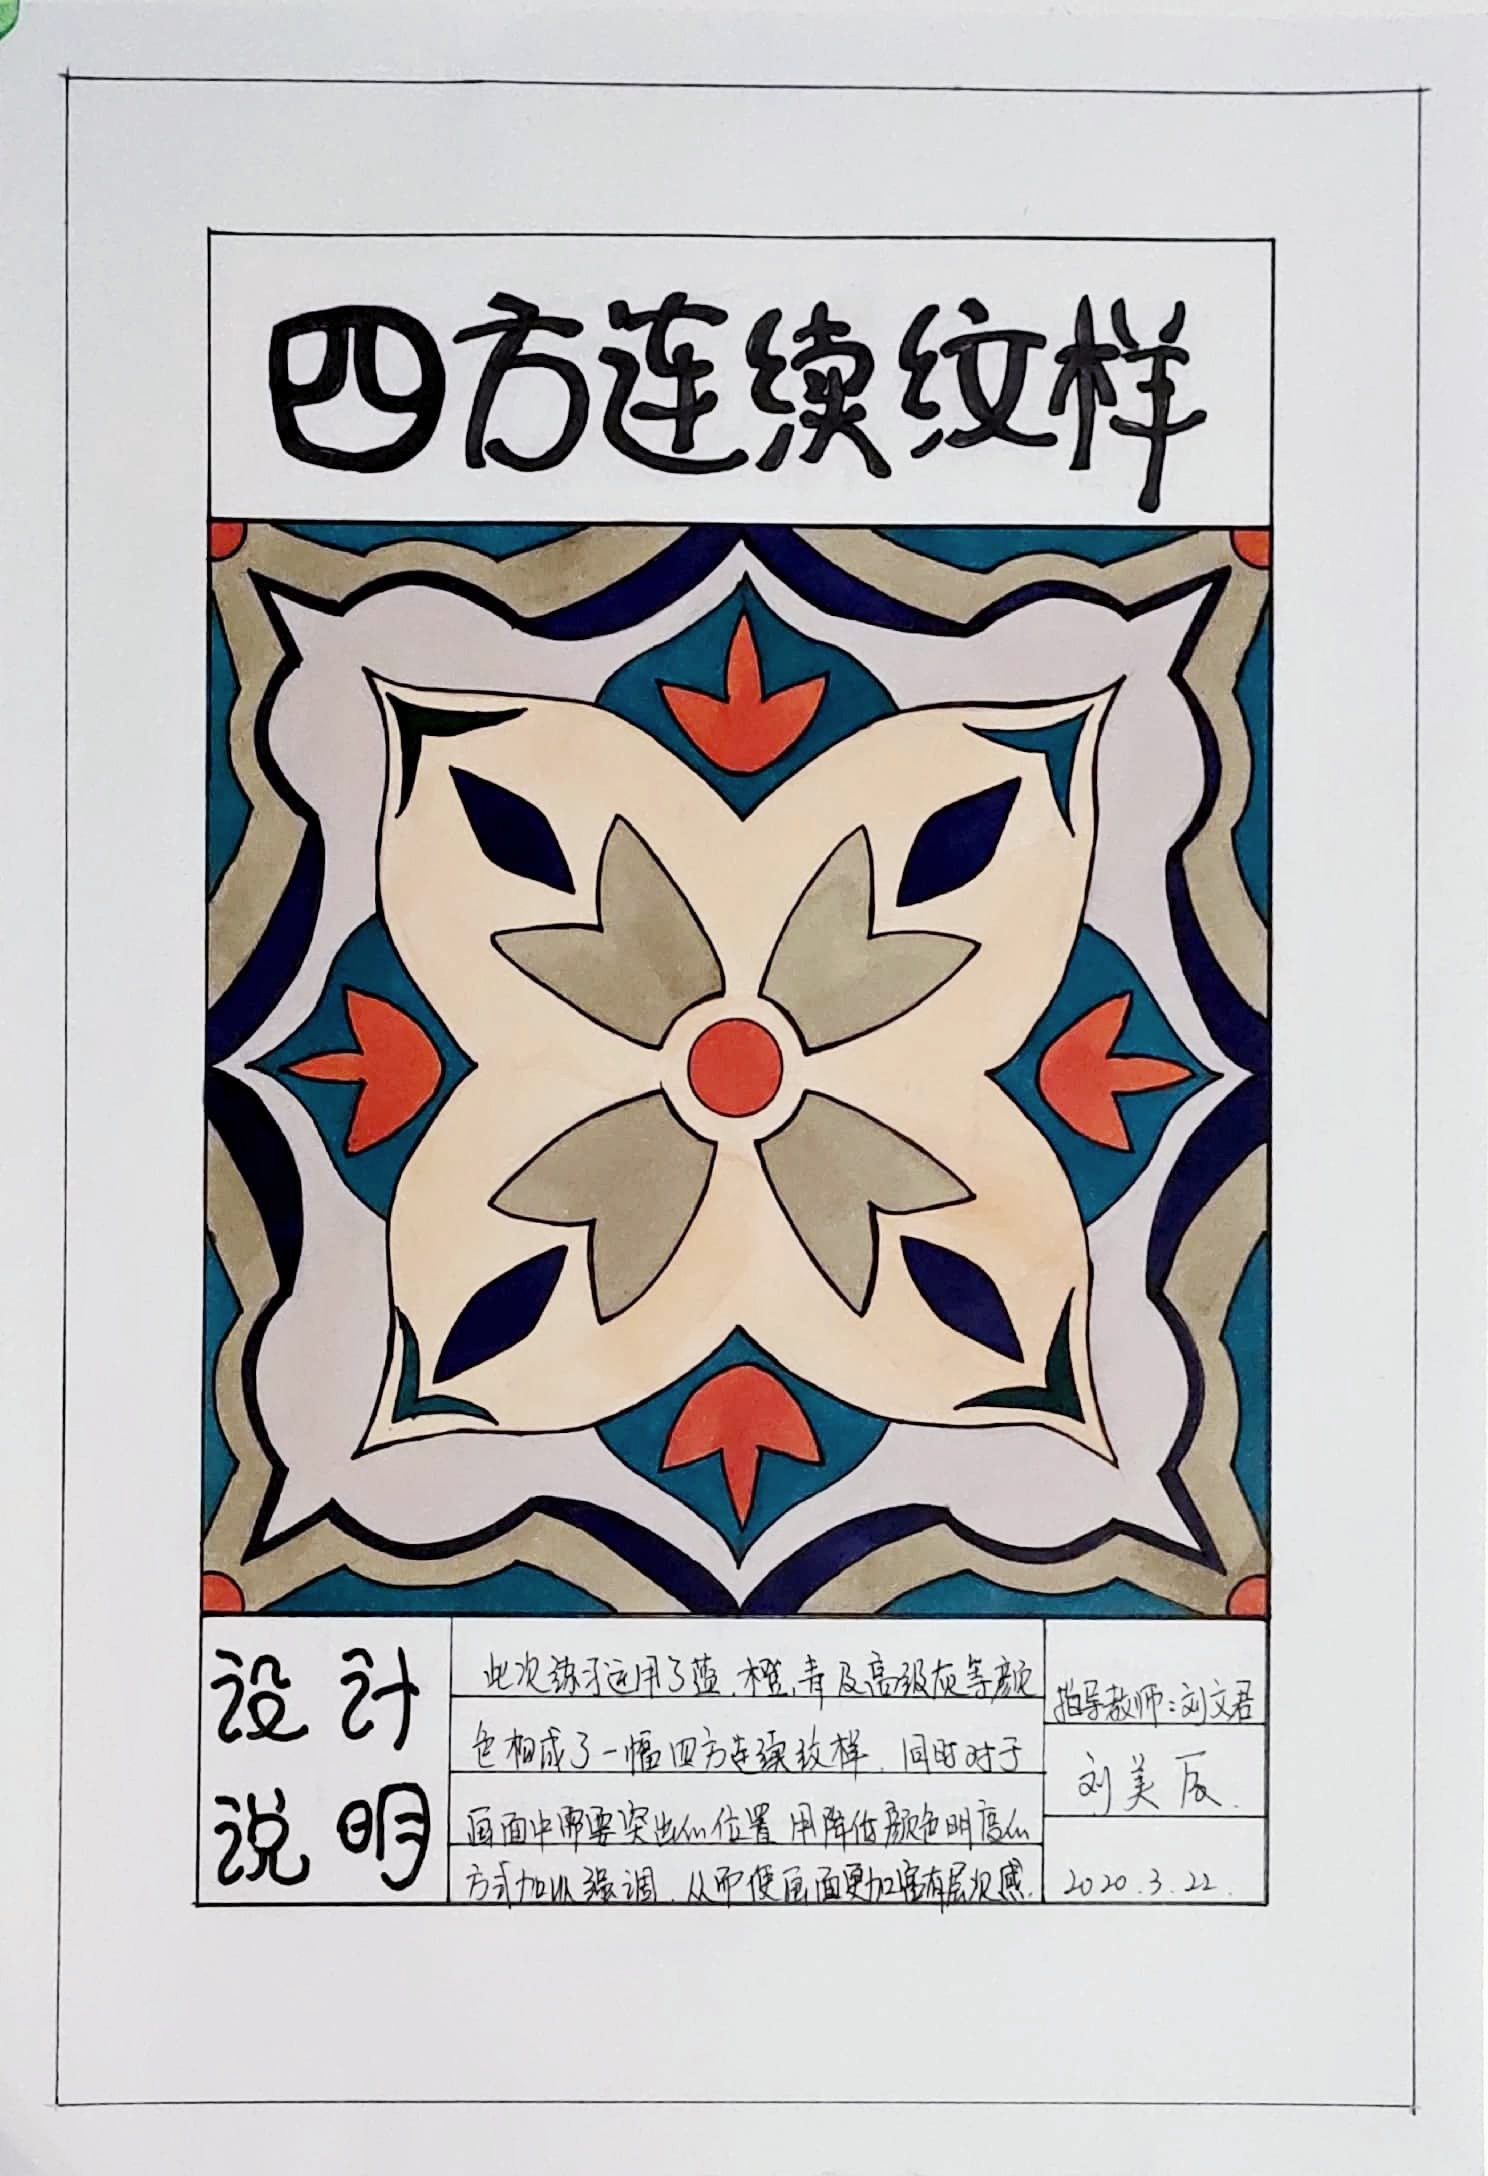 四方连续纹样
设计
说明
此次练习运用了蓝、橙、青及高级灰等颜
色相成了一幅四方连续纹样，同时对于
画面中需要突出的位置用降低颜色明度的
方式加以强调，从而使画面更加富有层次感。
指导教师：刘文君
刘美辰.
2020.3.22.